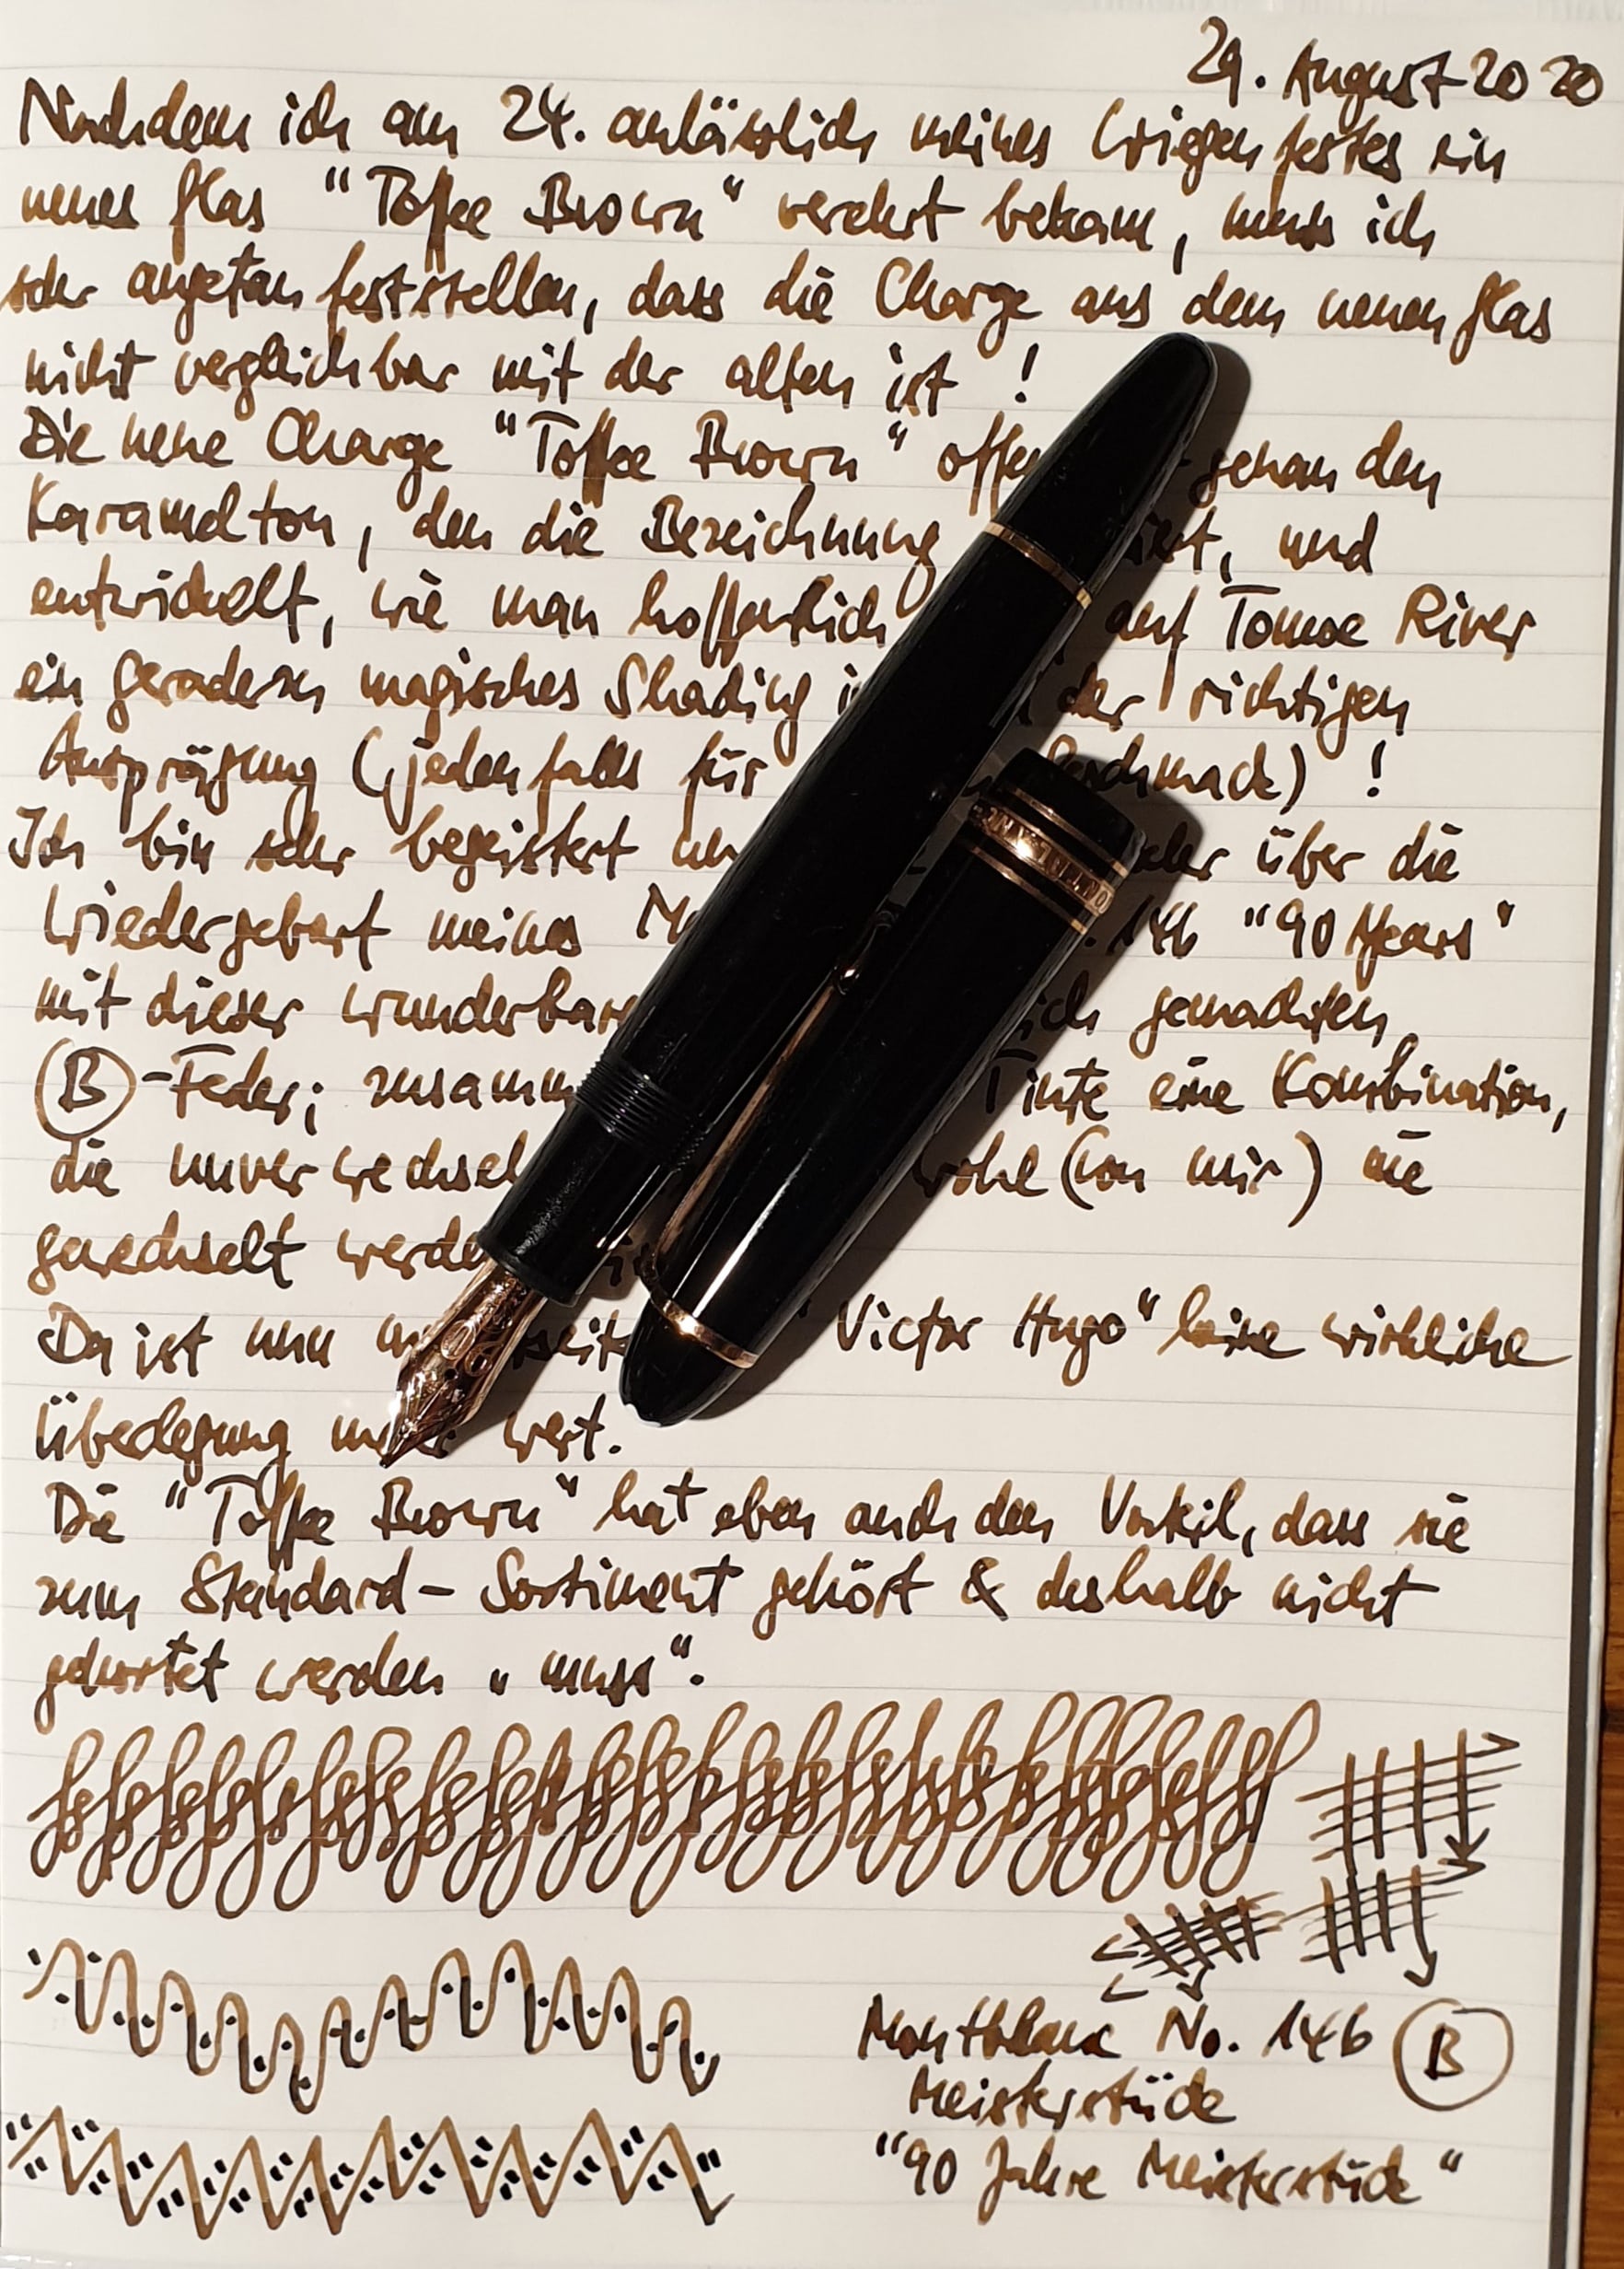 29. August 2020
Nachdem ich am 24. anlässlich meines Wiegenfestes ein
neues Glas "Toffee Brown" verehrt bekam, muss ich
sehr angetan feststellen, dass die Charge aus dem neuen Glas
nicht vergleichbar mit der alten ist !
Die neue Charge "Toffee Brown" genau den
Karamelton, den die Bezeichnung und
entwickelt, wie man hoffentlich auf Tomoe River
ein geradezu magisches Shading in der richtigen
Ausprägung (jedenfalls für Geschmack) !
Ich bin sehr begeistert über die
Wiedergeburt meines 146 "90 Years"
mit dieser gewachsen
B -Feder; Tinte eine Kombination,
die wohl (von mir) nie
gewechselt
Da ist nun Victor Hugo" keine wirkliche
Überlegung mehr wert.
Die "Toffee Brown" hat eben auch den Vorteil, dass sie
zum Standard - Sortiment gehört & deshalb nicht
gehortet werden „muss“.
Montblanc No. 146 B
Meisterstück
"90 Jahre Meisterstück"
MONTBLANC
90